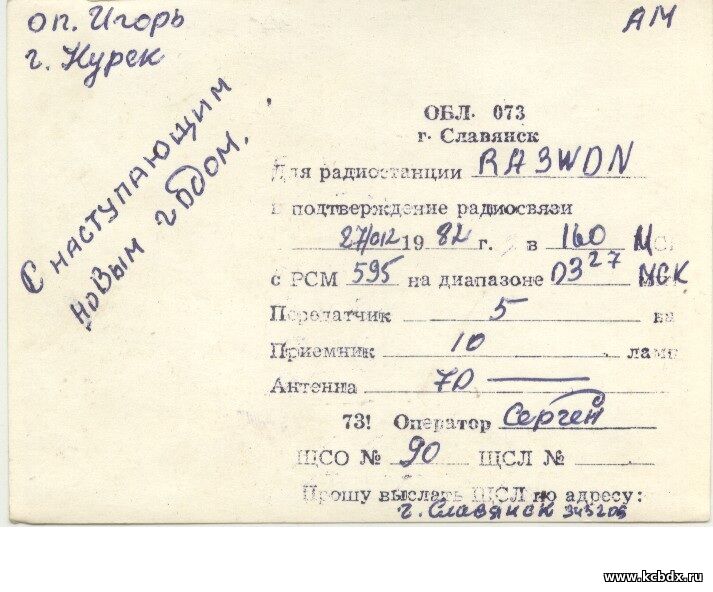 оп. Игорь
г. Курск
АМ
С наступающим
новым годом.
ОБЛ. 073
г. Славянск
Для радиостанции RA3WDN
в подтверждение радиосвязи
27/012 1982 г. в 160 М
с РСМ 595 на диапазоне 03 27 МСК
Передатчик 5 на
Приемник 10 ламп
Антенна 70
73! Оператор Сергей
ЩСО № 90 ЩСЛ №
Прошу выслать ЩСЛ по адресу:
г. Славянск
www.kcbdx.ru